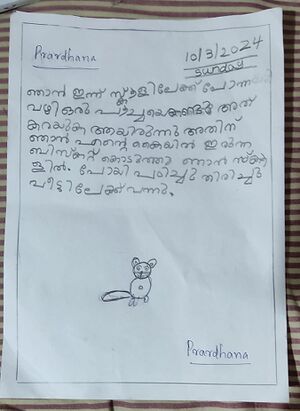 Prardhana
10/3/2024
Sunday
ഞാൻ ഇന്ന് സ്കൂളിലേക്ക് പോന്ന
വഴി ഒരു പൂച്ചയെ കണ്ടു അത്
കരയുക ആയിരുന്നു അതിന്
ഞാൻ എന്റെ കൈയിൽ ഇരുന്ന
ബിസ്ക്കറ്റ് കൊടുത്തു ഞാൻ സ്കൂ
ളിൽ. പോയി പഠിച്ചു തിരിച്ചു
വീട്ടിലേക്ക് വന്നു.
Prardhana